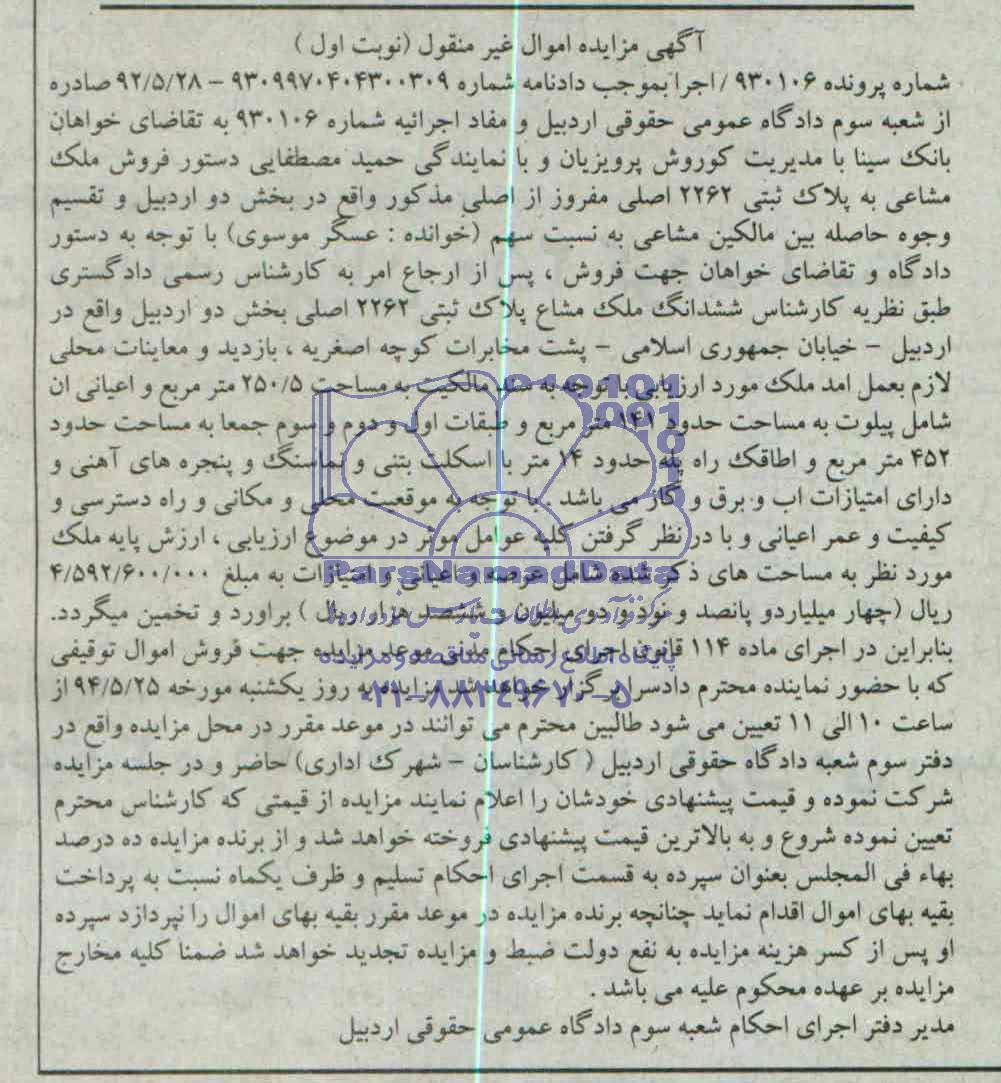 آگهی مزایده اموال غیر منقول (نوبت اول )
شماره پرونده ۹۳۰۱۰۶ /اجرا بموجب دادنامه شماره ۹۳۰۹۹۷۰۴۰۴۳۰۰۳۰۹ – ۹۲/۵/۲۸ صادره
از شعبه سوم دادگاه عمومی حقوقی اردبیل و مفاد اجرائیه شماره ۹۳۰۱۰۶ به تقاضای خواهان
بانک سینا با مدیریت کوروش پرویزیان و با نمایندگی حمید مصطفایی دستور فروش ملک
مشاعی به پلاک ثبتی ۲۲۶۲ اصلی مفروز از اصلی مذکور واقع در بخش دو اردبیل و تقسیم
وجوه حاصله بین مالکین مشاعی به نسبت سهم (خوانده : عسگر موسوی) با توجه به دستور
دادگاه و تقاضای خواهان جهت فروش ، پس از ارجاع امر به کارشناس رسمی دادگستری
طبق نظریه کارشناس ششدانگ ملک مشاع پلاک ثبتی ۲۲۶۲ اصلی بخش دو اردبیل واقع در
اردبیل – خیابان جمهوری اسلامی – پشت مخابرات کوچه اصغریه ، بازدید و معاینات محلی
لازم بعمل امد ملک مورد ارزیابی با توجه به سند مالکیت به مساحت ۲۵۰/۵ متر مربع و اعیانی ان
شامل پیلوت به مساحت حدود ۱۴۱ متر مربع و طبقات اول و دوم و سوم جمعا به مساحت حدود
۴۵۲ متر مربع و اطاقک راه پله حدود ۱۴ متر با اسکلت بتنی و نماسنگ و پنجره های آهنی و
دارای امتیازات اب و برق و گاز می باشد . با توجه به موقعیت محلی و مکانی و راه دسترسی و
کیفیت و عمر اعیانی و با در نظر گرفتن کلیه عوامل موثر در موضوع ارزیابی ، ارزش پایه ملک
مورد نظر به مساحت های ذکر شده شامل عرصه و اعیانی و امتیازات به مبلغ ۴/۵۹۲/۶۰۰/۰۰۰
ریال (چهار میلیاردو پانصد و نود و دو میلیون و ششصد هزار ریال ) براورد و تخمین میگردد.
بنابراین در اجرای ماده ۱۱۴ قانون اجرای احکام مدنی موعد مزایده جهت فروش اموال توقیفی
که با حضور نماینده محترم دادسرا برگزار خواهد شد مزایده به روز یکشنبه مورخه ۹۴/۵/۲۵ از
ساعت ۱۰ الی ۱۱ تعیین می شود طالبین محترم می توانند در موعد مقرر در محل مزایده واقع در
دفتر سوم شعبه دادگاه حقوقی اردبیل ( کارشناسان – شهرک اداری) حاضر و در جلسه مزایده
شرکت نموده و قیمت پیشنهادی خودشان را اعلام نمایند مزایده از قیمتی که کارشناس محترم
تعیین نموده شروع و به بالاترین قیمت پیشنهادی فروخته خواهد شد و از برنده مزایده ده درصد
بهاء فی المجلس بعنوان سپرده به قسمت اجرای احکام تسلیم و ظرف یکماه نسبت به پرداخت
بقیه بهای اموال اقدام نماید چنانچه برنده مزایده در موعد مقرر بقیه بهای اموال را نپردازد سپرده
او پس از کسر هزینه مزایده به نفع دولت ضبط و مزایده تجدید خواهد شد ضمنا کلیه مخارج
مزایده بر عهده محکوم علیه می باشد .
مدیر دفتر اجرای احکام شعبه سوم دادگاه عمومی حقوقی اردبیل
ParsNamadData
پایگاه اطلاع رسانی مناقصه و مزایده
۰۲۱–۸۸۳۴۹۶۷۰–۵